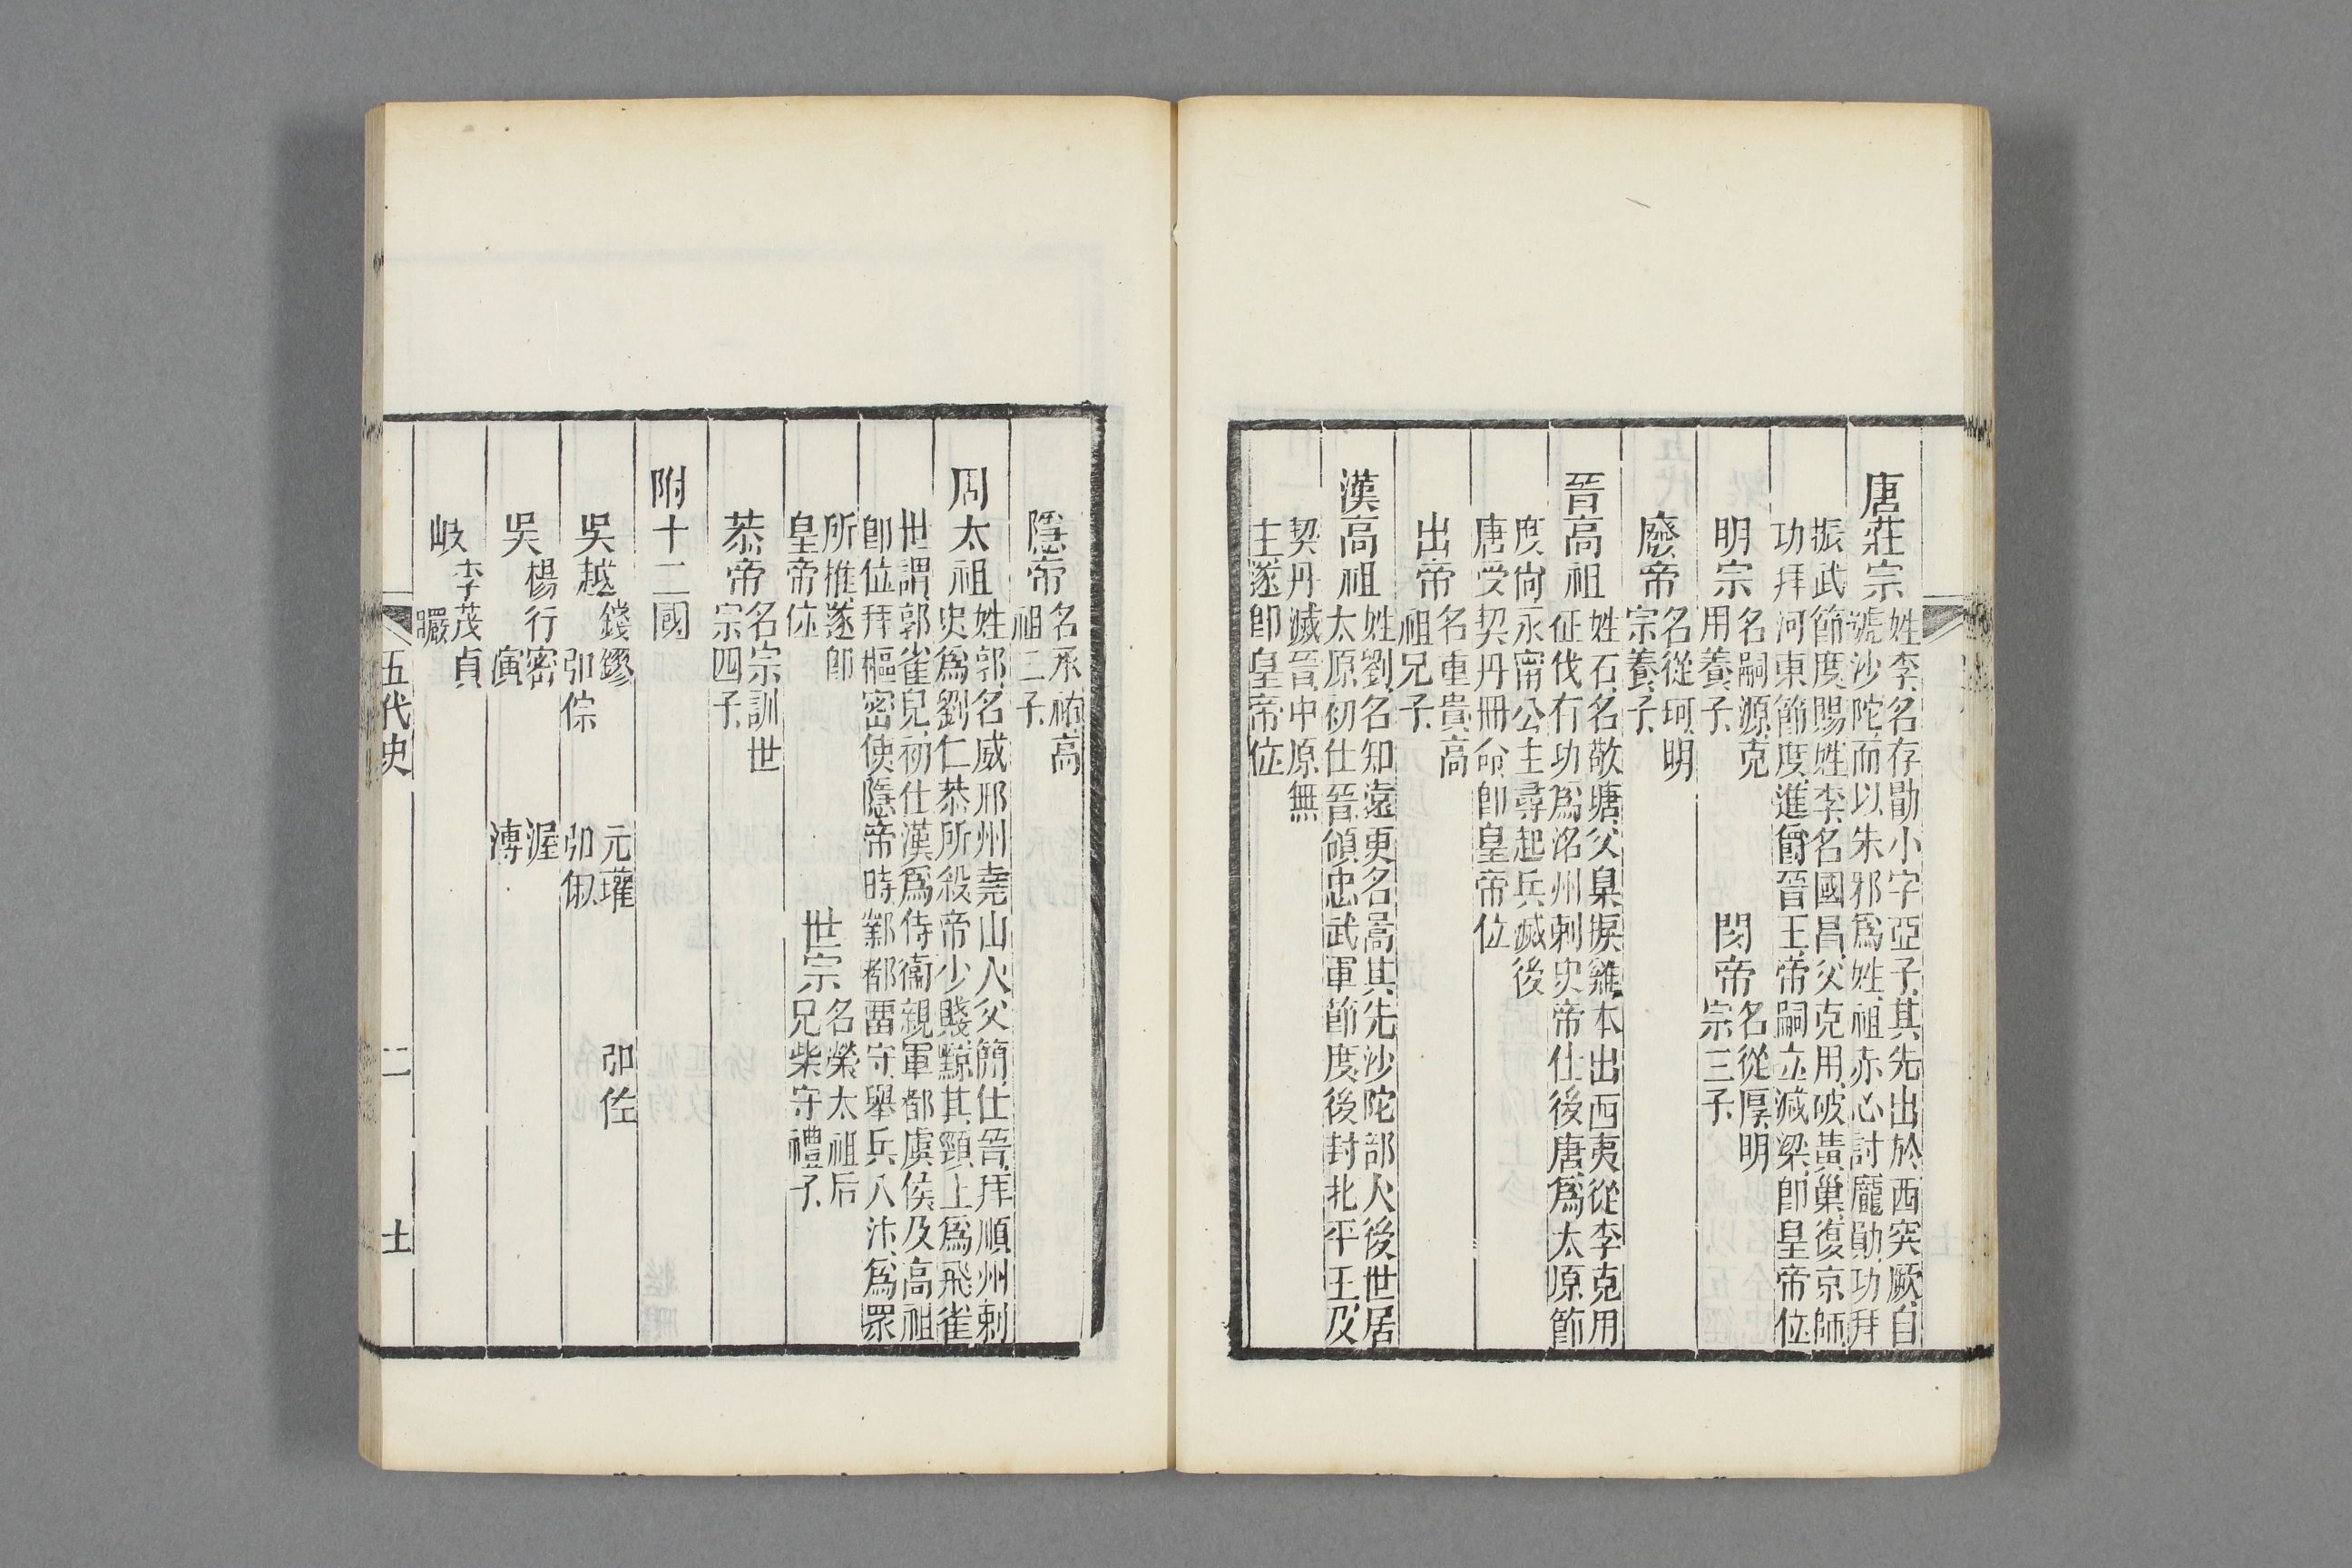 唐莊宗姓李名存勖小字亞子其先出於西突厥自
號沙陀而以朱邪爲姓祖赤心討龐勛功拜
振武節度賜姓李名國昌父克用破黃巢復京師
功拜河東節度進爵晉王帝嗣立滅梁卽皇帝位
明宗名嗣源克
用養子
閔帝名從厚明
宗三子
廢帝名從珂明
宗養子
晉高祖姓石名敬瑭父臬捩雞本出西夷從李克用
征伐有功爲洺州刺史帝仕後唐爲太原節
度尙永甯公主尋起兵滅後
唐受契丹冊命卽皇帝位
出帝名重貴高
祖兄子
漢高祖姓劉名知遠更名暠其先沙陀部人後世居
太原初仕晉領忠武軍節度後封北平王及
契丹滅晉中原無
主遂卽皇帝位
隱帝名承祐高
祖二子
周太祖姓郭名威邢州堯山人父簡仕晉拜順州刺
史爲劉仁恭所殺帝少賤黥其頸上爲飛雀
世謂郭雀兒初仕漢爲侍衞親軍都虞侯及高祖
卽位拜樞密使隱帝時鄴都畱守舉兵入汴爲眾
所推遂卽
皇帝位
世宗名榮太祖后
兄柴守禮子
恭帝名宗訓世
宗四子
附十二國
吳越錢鏐 元瓘 弗佐
弗倧 弗俶
吳楊行密 渥
演 溥
岐李茂貞
曮
五代史 二 士